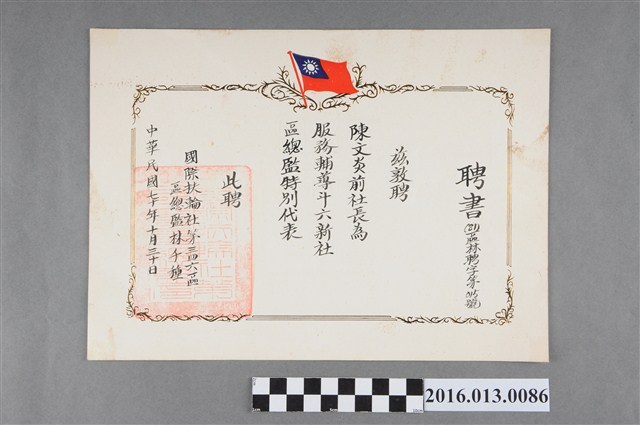 聘書
區林聘字第 號
茲敦聘
陳文炎前社長為
服務輔導斗六新社
區總監特別代表
此聘
國際扶輪社第三四六〇區
區總監林千種
中華民國七十年十月三十日
2016.013.0086